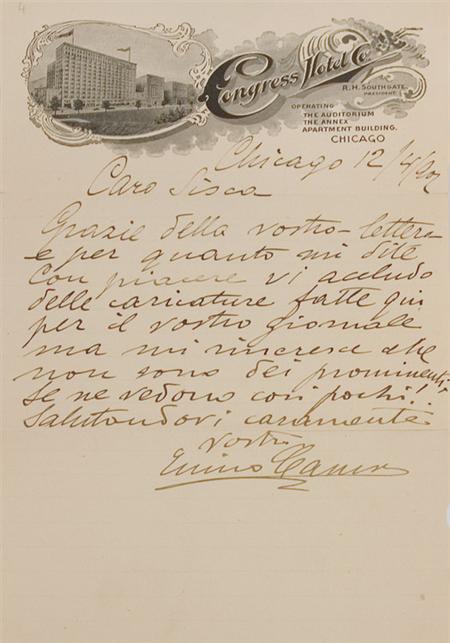 4
Congress Hotel Co.
R. H. SOUTHGATE.
PRESIDENT.
OPERATING
THE AUDITORIUM
THE ANNEX
APARTMENT BUILDING.
CHICAGO
Chicago 12/4/907
Caro Sisca
Grazie della vostra lettera
e per quanto mi dite
Con piacere vi accludo
delle caricature fatte qui
per il vostro giornale
ma mi rincresce che
non sono dei prominenti.
Se ne vedono così pochi!
Salutandovi caramente
vostro
Enrico Caruso